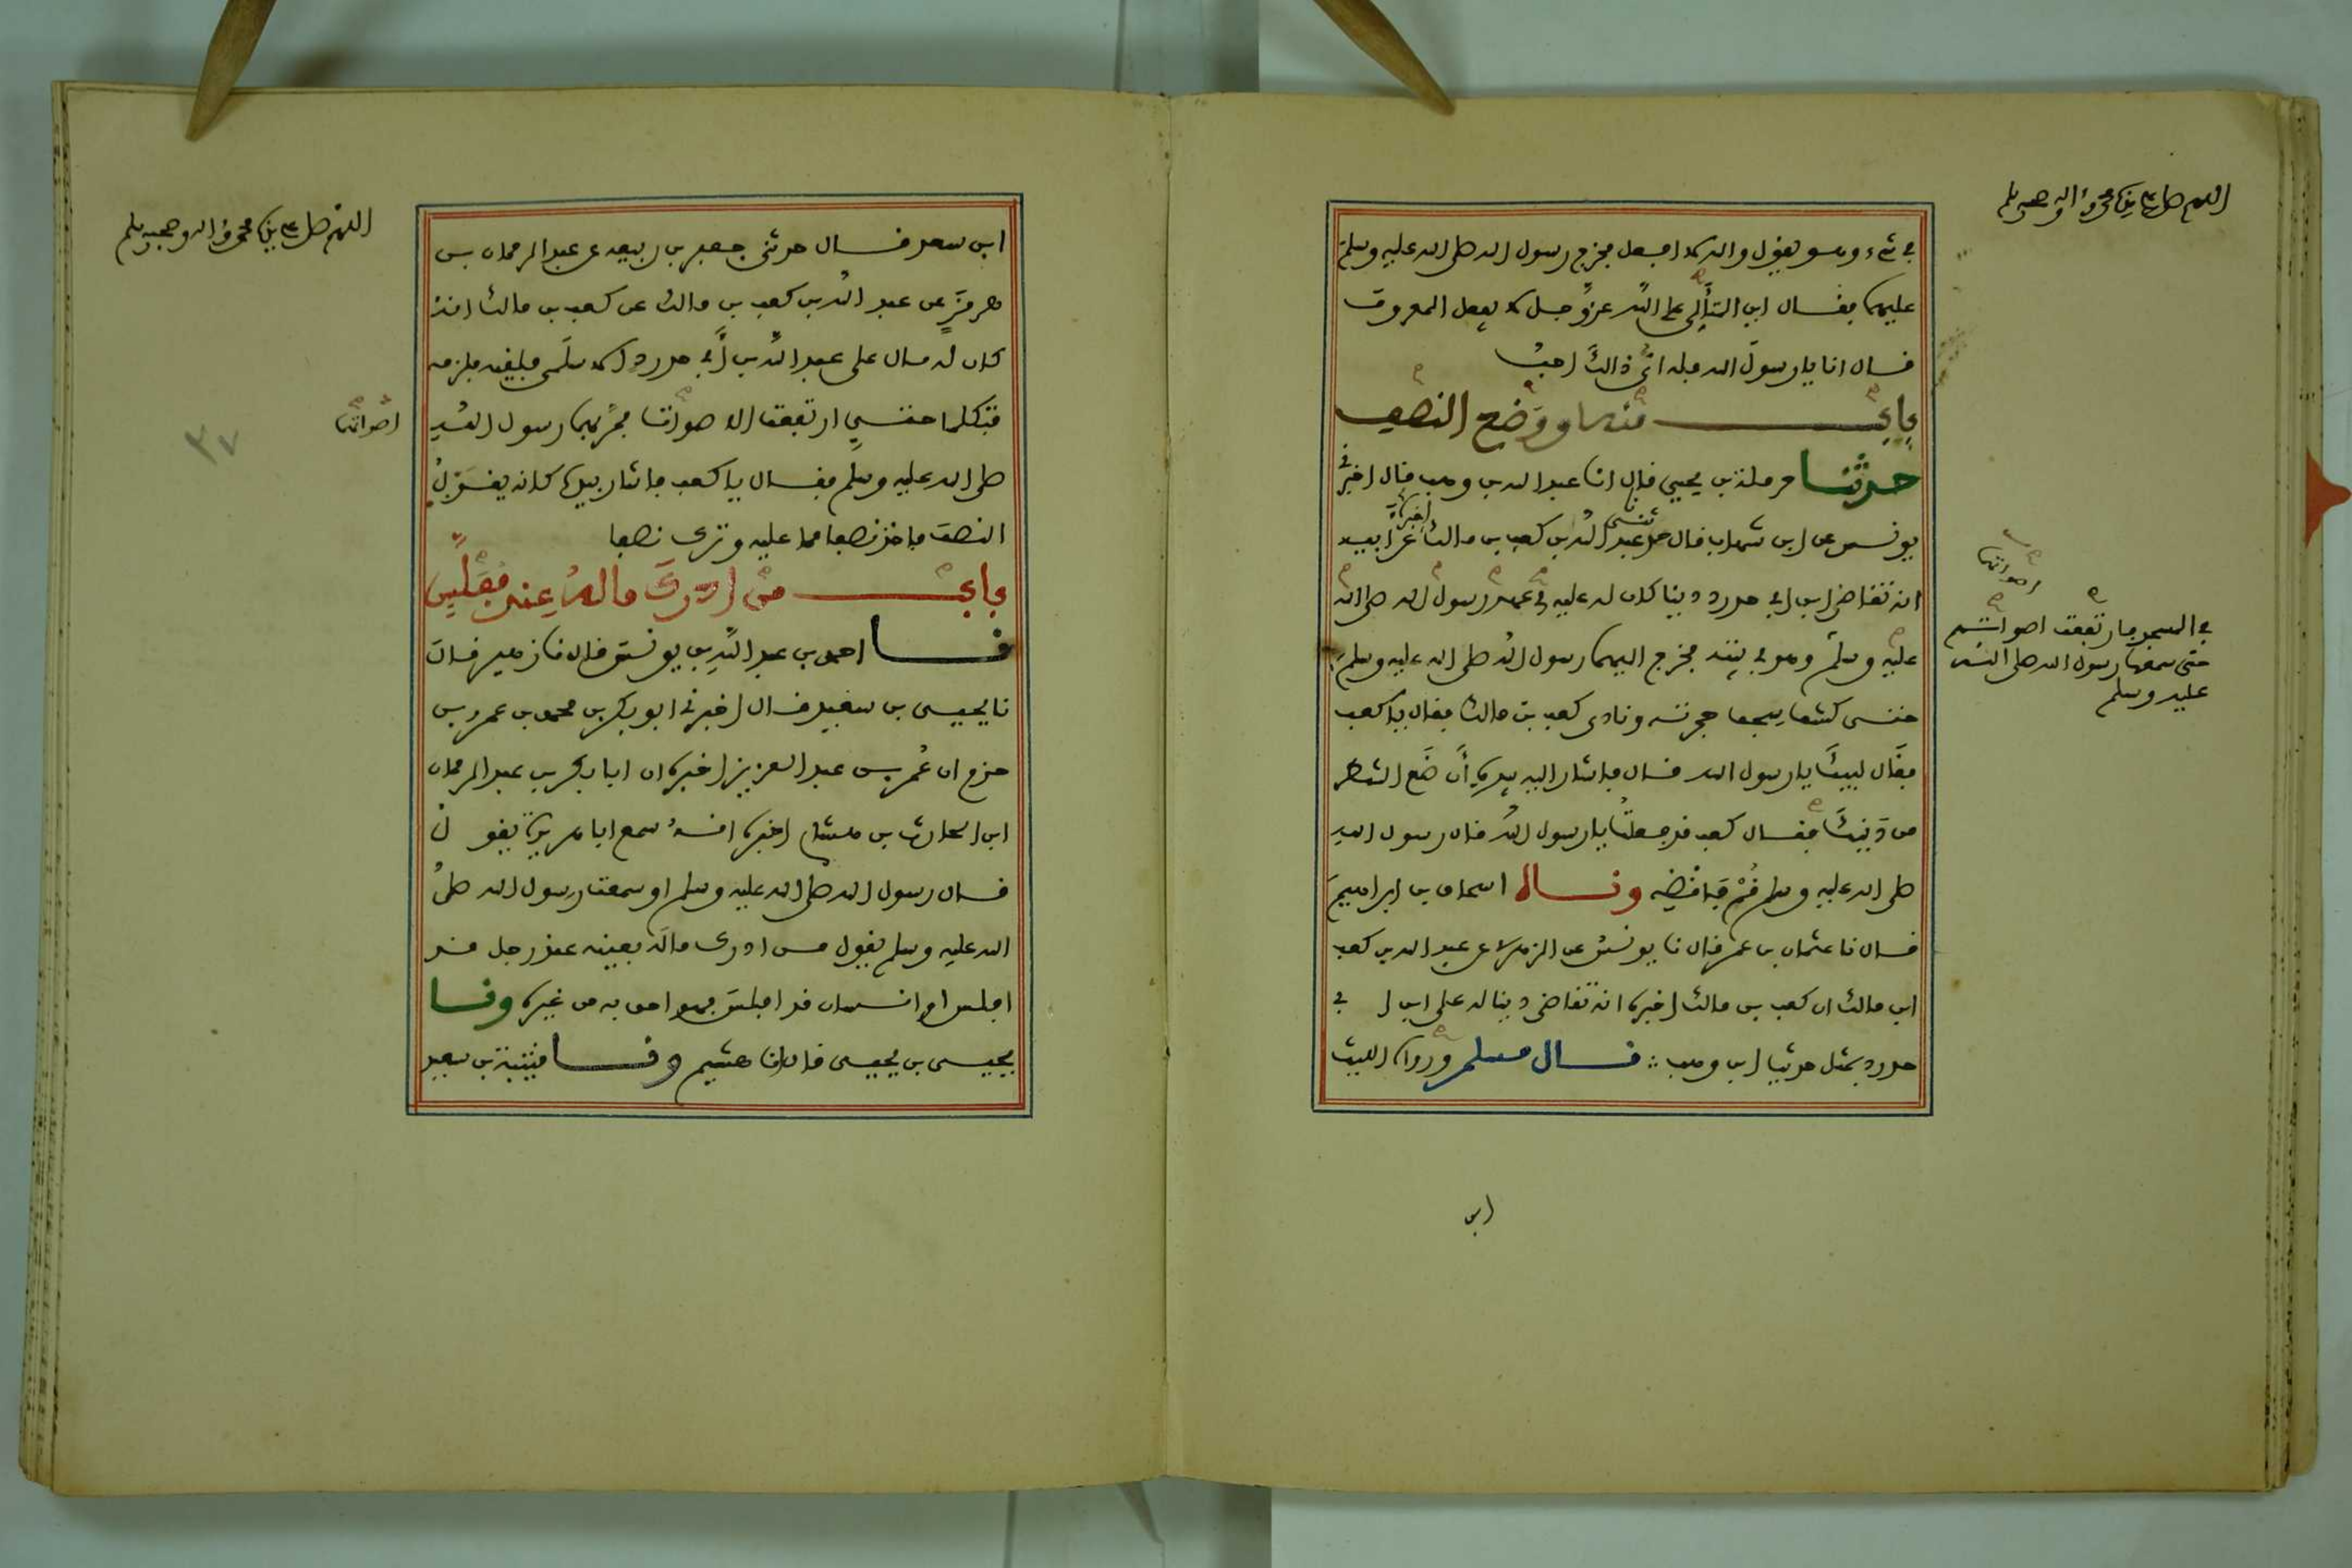 اللهم صل على سيدنا محمد وءاله وصحبه وسلم
في شيء وهو يقول والله لا افعل فخرج رسول الله صلى الله عليه وسلم
عليهما فقال اين المتألي على الله عز وجل لا يفعل المعروف
قال انا يا رسول الله فله اي ذالك احب
باب منه ووضع النصف
حدثنا حرملة بن يحيى قال انا عبد الله بن وهب قال اخبرني
يونس عن ابن شهاب قال حدثني عبد الله بن كعب بن مالك اخبره عن ابيه
انه تقاضى ابن ابي حدرد دينا كان له عليه في عهد رسول الله صلى الله
عليه وسلم وهو في بيته فخرج اليهما رسول الله صلى الله عليه وسلم
حتى كشف سجف حجرته ونادى كعب بن مالك فقال يا كعب
فقال لبيك يا رسول الله قال فاشار اليه بيده أن ضع الشطر
من دينك فقال كعب قد فعلت يا رسول الله قال رسول الله
صلى الله عليه وسلم قم فاقضه وقال اسحاق بن ابراهيم
قال نا عثمان بن عمر قال نا يونس عن الزهري عن عبد الله بن كعب
ابن مالك ان كعب بن مالك اخبره انه تقاضى دينا له على ابن ابي
حدرد بمثل حديث ابن وهب قال مسلم وروى الليث
اصواتهما
في المسجد فارتفعت اصواتهم
حتى سمعها رسول الله صلى الله
عليه وسلم
ابن
اللهم صل على سيدنا محمد وءاله وصحبه وسلم
ابن سعد قال حدثني جعفر بن ربيعة عن عبد الرحمان بن
هرمز عن عبد الله بن كعب بن مالك عن كعب بن مالك انه
كان له مال على عبد الله بن أبي حدرد الاسلمي فلقيه فلزمه
فتكلما حتى ارتفعت الاصواتا فمر بهما رسول الله
صلى الله عليه وسلم فقال يا كعب فاشار بيده كانه يقول
النصف فاخذ نصفا مما عليه وترك نصفا
باب من ادرك ماله عند مفلس
نا احمد بن عبد الله بن يونس قال نا زهير قال
نا يحيى بن سعيد قال اخبرني ابو بكر بن محمد بن عمرو بن
حزم ان عمر بن عبد العزيز اخبره ان ابا بكر بن عبد الرحمان
ابن الحارث بن هشام اخبره انه سمع ابا هريرة يقول
قال رسول الله صلى الله عليه وسلم او سمعت رسول الله صلى
الله عليه وسلم يقول من ادرك ماله بعينه عند رجل قد
افلس او انسان قد افلس فهو احق به من غيره ونا
يحيى بن يحيى قال انا هشيم ونا قتيبة بن سعيد
اصواتهما
٣٧